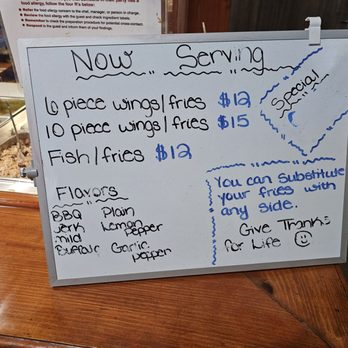 food allergy, follow the four R's below:
Refer the food allergy concern to the chef, manager, or person in charge.
Review the food allergy with the guest and check ingredient labels.
Remember to check the preparation procedure for potential cross-contact.
Respond to the guest and inform them of your findings.
Now Serving
6 piece wings/fries $12
10 piece wings/fries $15
Fish/fries $12
Special
Flavors
BBQ Plain
Jerk Lemon Pepper
mild
Buffalo Garlic pepper
You can substitute
your fries with
any side.
Give Thanks
for Life